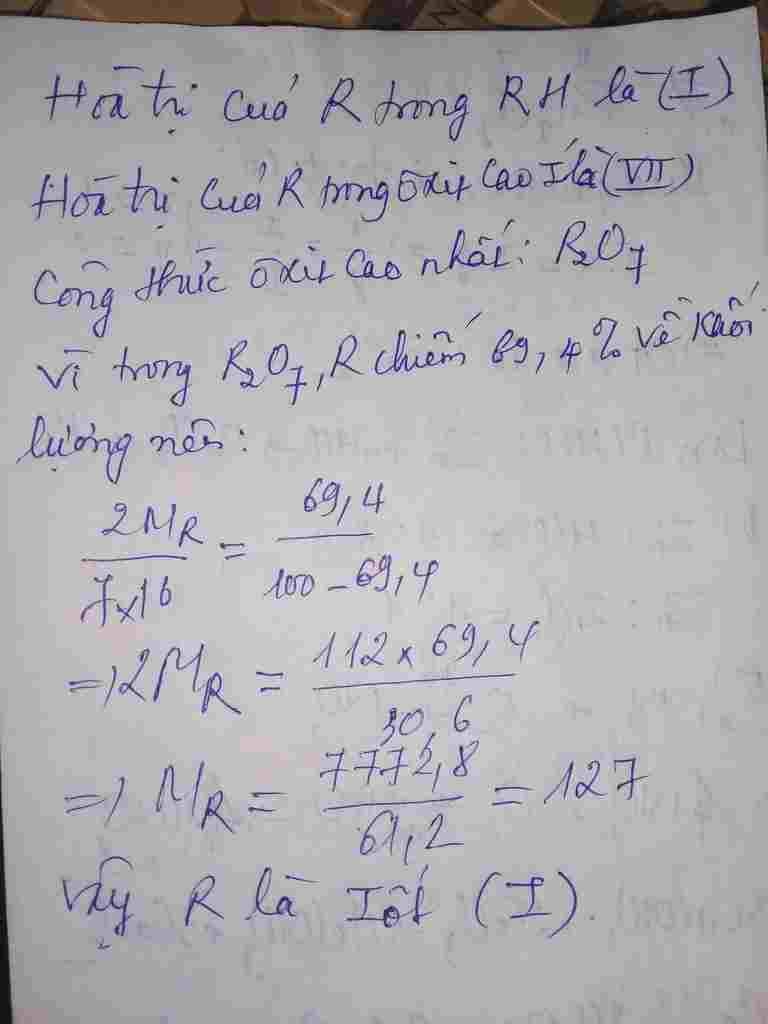 Hoá trị của R trong RH là (I)
Hoá trị của R trong ôxit cao I là (VII)
Công thức ôxit cao nhất: R2O7
Vì trong R2O7, R chiếm 69,4% về khối
lượng nên:
2MR / 7x16 = 69,4 / 100 - 69,4
=> 2MR = 112 x 69,4 / 30,6
=> MR = 7772,8 / 61,2 = 127
Vậy R là Iốt (I).